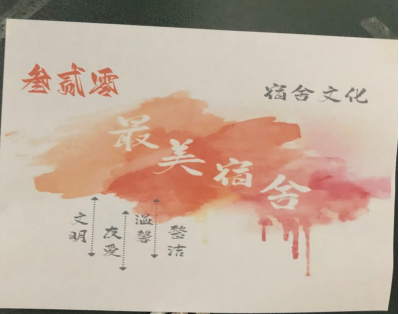 叁贰零
宿舍文化
最美宿舍
文明
友爱
温馨
整洁